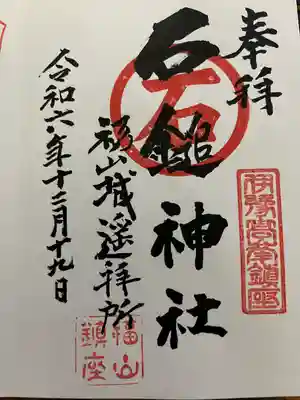 奉拝
石鎚神社
石
福山城遥拝所
福山
鎮座
令和六年十二月十九日